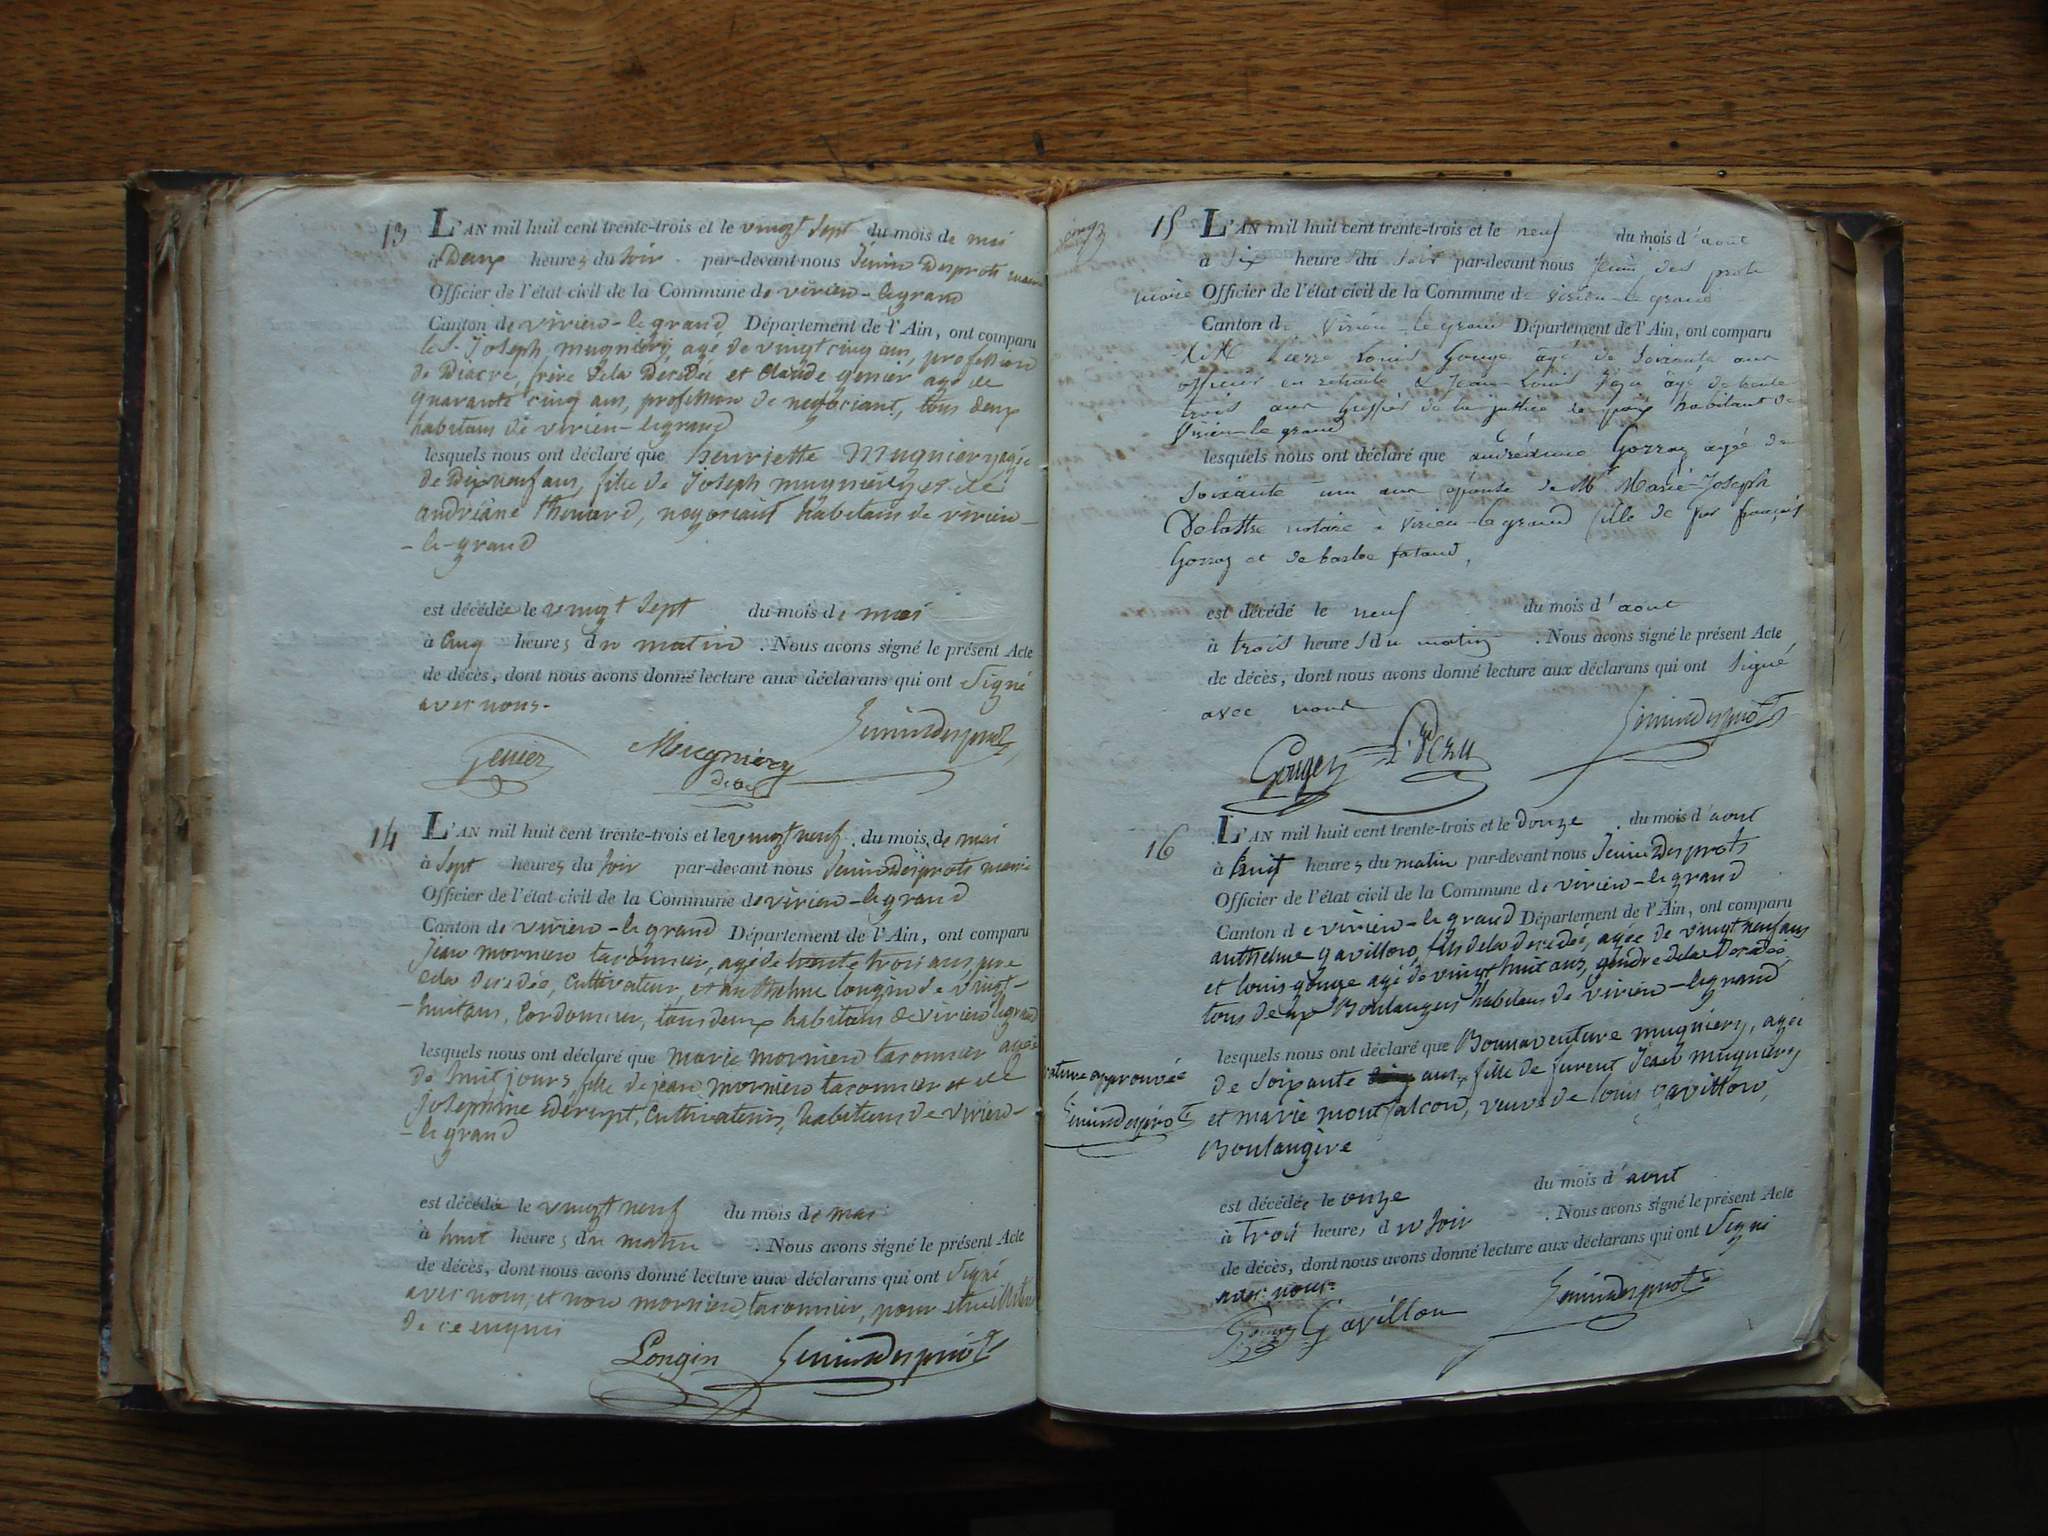 13 L'AN mil huit cent trente-trois et le vingt sept du mois de mai
à Deux heures du soir par-devant nous Jenin Desprots maire
Officier de l'état civil de la Commune de virieu-legrand
Canton de virieu-legrand Département de l'Ain, ont comparu
le Sr Joseph mugniery, agé de vingt cinq ans, profession
de Diacre, frère de la Decédée et Claude genier agé de
quarante cinq ans, profession de negociant, tous deux
habitans de virieu-legrand
lesquels nous ont déclaré que henriette Mugniery agée
de Dix neuf ans, fille de Joseph mugniery et de
andriane thomard, negociant habitans de virieu-
-le-grand
est décédée le vingt sept du mois de mai
à Cinq heures du matin . Nous avons signé le présent Acte
de décès, dont nous avons donné lecture aux déclarans qui ont signé
avec nous.
Genier Mugniery Jenindesprots
diacre
14 L'AN mil huit cent trente-trois et le vingt neuf du mois de mai
à sept heures du soir par-devant nous Jenin Desprots maire
Officier de l'état civil de la Commune de virieu-legrand
Canton de virieu-legrand Département de l'Ain, ont comparu
jean mornieu taronnier, agé de trente trois ans père
de la decedée, Cultivateur, et anthelme longin de vingt-
-huit ans, Cordonnier, tous deux habitans de virieu legrand
lesquels nous ont déclaré que marie mornieu taronnier agée
de huit jours fille de jean mornieu taronnier et de
josephine Cultivateurs, habitans de virieu-
-legrand
est décédée le vingt neuf du mois de mai
à huit heures du matin . Nous avons signé le présent Acte
de décès, dont nous avons donné lecture aux déclarans qui ont signé
avec nous, et non mornieu taronnier, pour etre illiteré
de ce enquis
Longin Jenindesprots
cinq
15 L'AN mil huit cent trente-trois et le neuf du mois d'aout
à six heures du soir par-devant nous Jenin des prots
maire Officier de l'état civil de la Commune de virieu-le grand
Canton de virieu-le grand Département de l'Ain, ont comparu
MM Pierre Louis Gouge âgé de soixante ans
officier en retraite & Jean Louis âgé de trente
trois ans Greffier de la justice de paix habitant de
Virieu-le grand
lesquels nous ont déclaré que Gorraz agée de
soixante un ans épouse de Mr Marie-Joseph
Delastre notaire à virieu-le grand fille de feu françois
Gorraz et de barbe
est décédé le neuf du mois d'aout
à trois heures du matin . Nous avons signé le présent Acte
de décès, dont nous avons donné lecture aux déclarans qui ont signé
avec nous
Gouge Jenindesprots
16 L'AN mil huit cent trente-trois et le Douze du mois d'aout
à huit heures du matin par-devant nous Jenin Desprots
Officier de l'état civil de la Commune de virieu-legrand
Canton de virieu-legrand Département de l'Ain, ont comparu
anthelme gavillon, fils de la decedée, agée de vingt neuf ans
et louis gouge agé de vingt huit ans, gendre de la Decedée,
tous deux Boulangers habitans de virieu-legrand
lesquels nous ont déclaré que Bonnaventure mugniery, agée
rature approuvée de soixante ans, fille de furent Jean mugniery
Jenindesprots et marie montfalcon, veuve de louis gavillon,
Boulangère
est décédée le onze du mois d'aout
à trois heures du soir . Nous avons signé le présent Acte
de décès, dont nous avons donné lecture aux déclarans qui ont signé
avec nous
Gouge Gavillon Jenindesprots